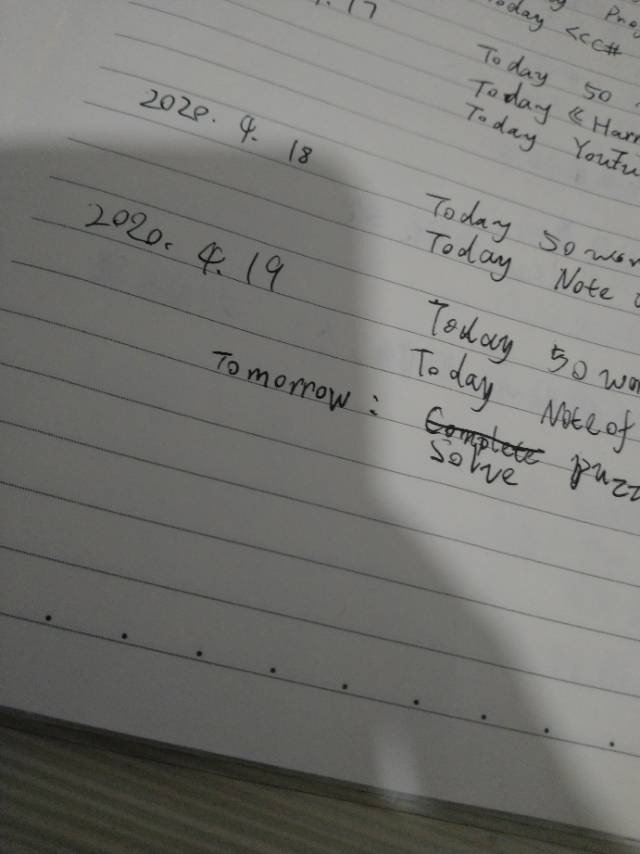 Today <CC#
Today 50
Today 《Harr
Today YouTu
2020. 4. 18
Today 50 wor
Today Note
2020. 4. 19
Today 50 wor
Today Note of
Tomorrow : Complete puzz
Solve